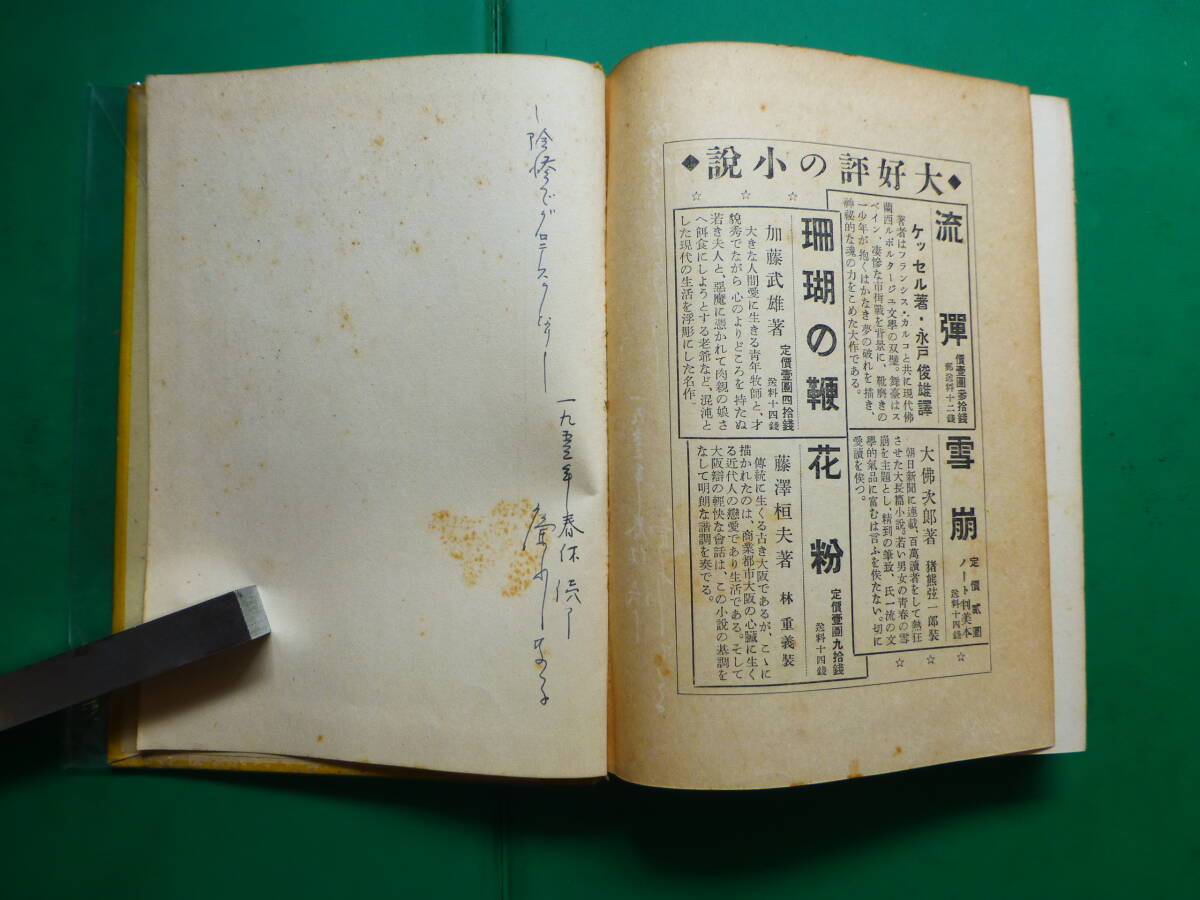 ◆大好評の小說◆
☆ ☆ ☆
流彈
價壹圓參拾錢
郵送料十二錢
ケッセル著・永戸俊雄譯
著者はフランシス・カルコと共に現代佛
蘭西ルポルタージュ文學の双璧。舞臺はス
ペイン、凄慘な市街戰を背景に、靴磨きの
一少年が抱くはかなき夢の破れを描き、
神秘的な魂の力をこめた大作である。
珊瑚の鞭
定價壹圓四拾錢
送料十四錢
加藤武雄著
大きな人間愛に生きる青年牧師と、才
貌秀でながら心のよりどころを持たぬ
若き夫人と、惡魔に憑かれて肉親の娘さ
へ餌食にしようとする老爺など、混沌と
した現代の生活を浮彫にした名作。
雪崩
定價貳圓
ノート判美本
送料十四錢
大佛次郎著
猪熊弦一郎裝
朝日新聞に連載、百萬讀者をして熱狂
させた大長篇小說。若い男女の青春の雪
崩を主題とし、精到の筆致、氏一流の文
學的氣品に富むは言ふを俟たない。切に
愛讀を俟つ。
花粉
定價壹圓九拾錢
送料十四錢
藤澤桓夫著
林重義裝
傳統に生くる古き大阪であるが、こゝに
描かれたのは、商業都市大阪の心臟に生く
る近代人の戀愛であり生活である。そして
大阪辯の輕快な會話は、この小說の基調を
なして明朗な諧調を奏でる。
☆ ☆ ☆
陰惨でグロテスクなり
春休